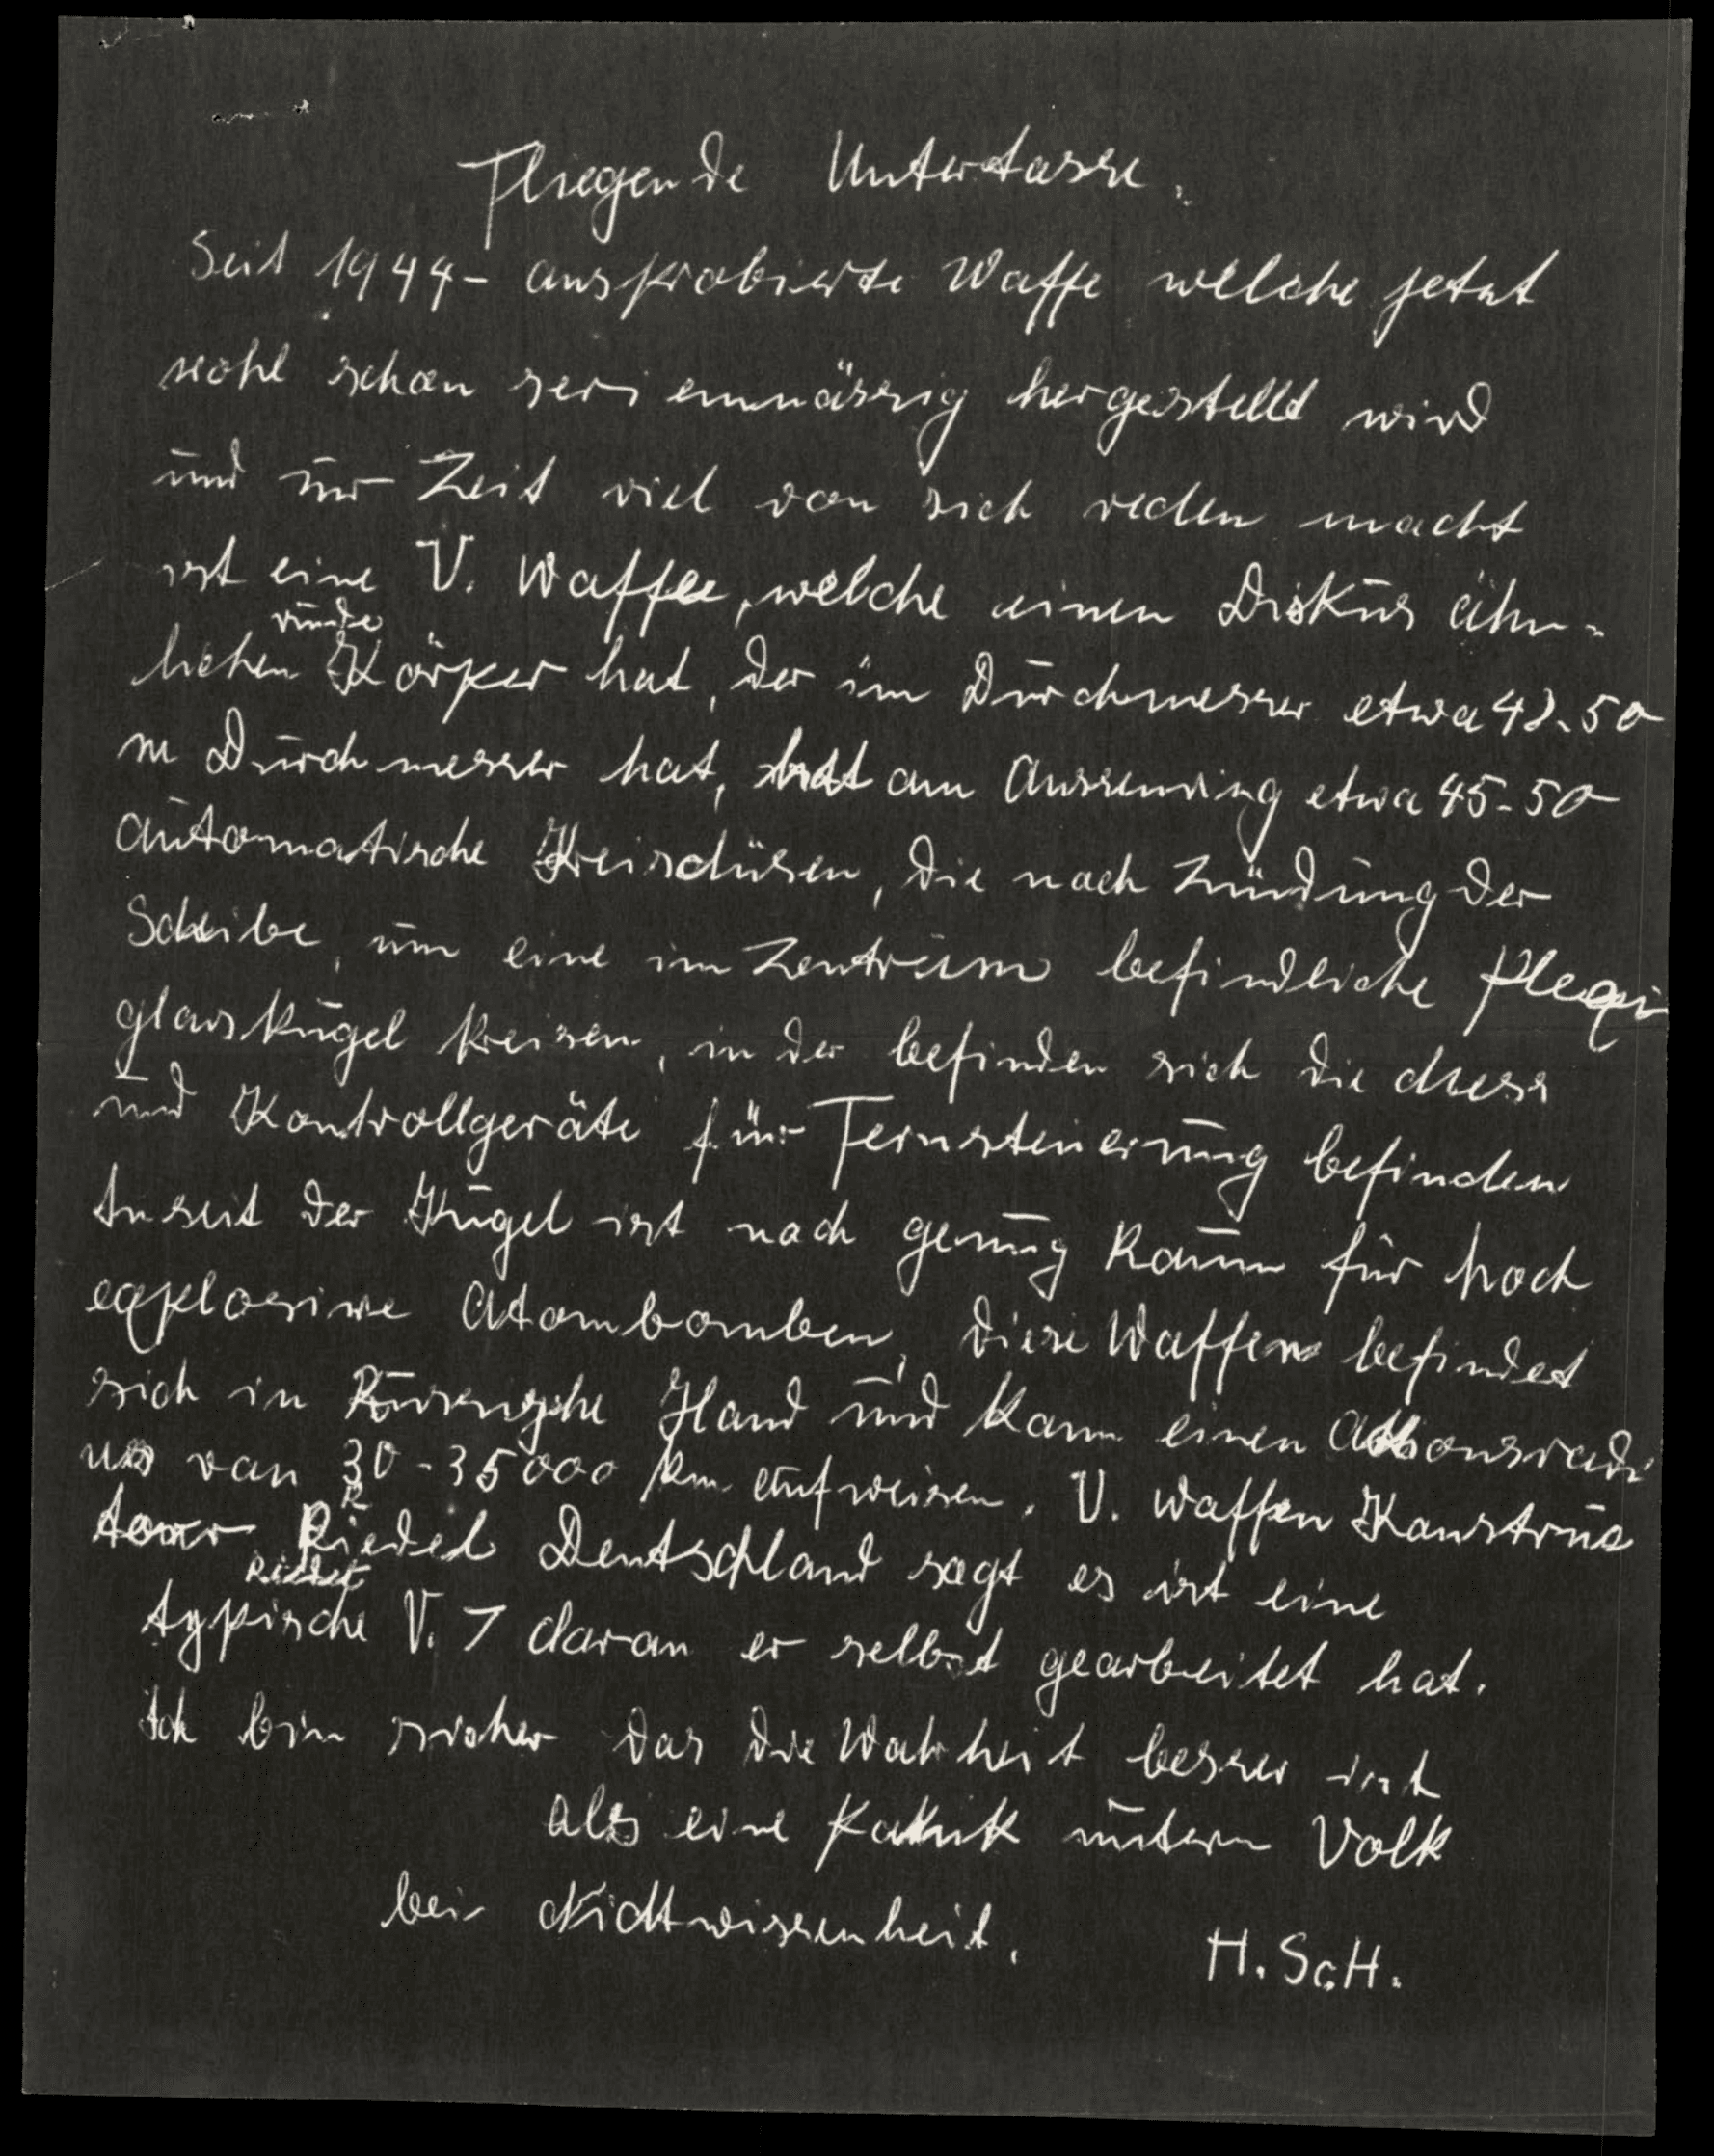 Fliegende Untertasse.
Seit 1944 - ausprobierte Waffe welche jetzt
wohl schon serienmässig hergestellt wird
und zur Zeit viel von sich reden macht
ist eine V. Waffe, welche einen Diskus ähn-
runde
lichen Körper hat, der im Durchmesser etwa 42-50
m Durchmesser hat, hat am Aussenring etwa 45-50
automatische Kreisdüsen, die nach Zündung der
Scheibe, um eine im Zentrum befindliche Plexi
glaskugel kreisen, in der befinden sich die Mess
und Kontrollgeräte für Fernsteuerung befinden
der Kugel ist noch genug Raum für hoch
explosive Atombomben, diese Waffen befindet
sich in Hand und kann einen Aktionsradi
us von 30-35000 km aufweisen. V. Waffen Konstruc
R
tour Riedel Deutschland sagt es ist eine
Riedel
typische V. 7 daran er selbst gearbeitet hat.
Ich bin sicher das die Wahrheit besser ist
als eine Panik unterm Volk
bei Nichtwissenheit.
H. ScH.